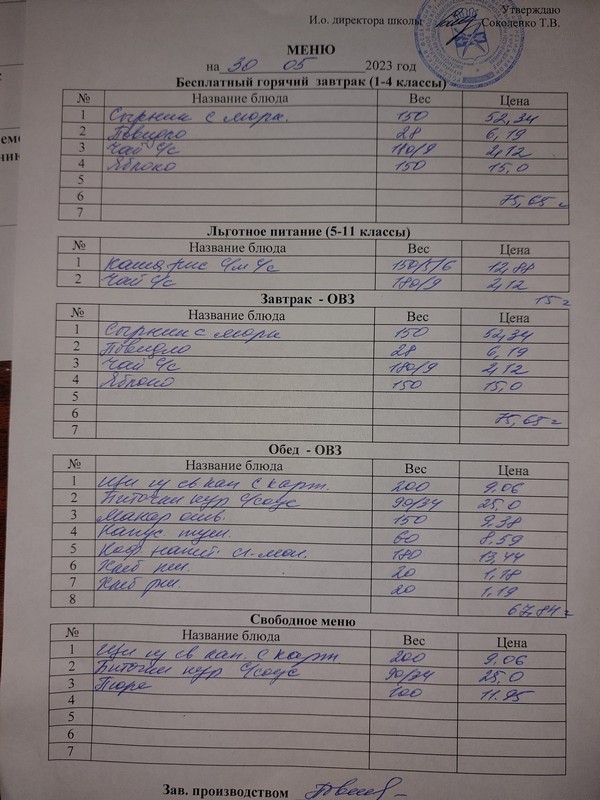 Утверждаю
И.о. директора школы Соколенко Т.В.
МЕНЮ
на 30 05 2023 год
Бесплатный горячий завтрак (1-4 классы)
№ Название блюда Вес Цена
1 Сырник с морк. 150 52,34
2 Повидло 28 6,19
3 Чай с/с 180/9 2,12
4 Яблоко 150 15,0
5
6 75,65
7
Льготное питание (5-11 классы)
№ Название блюда Вес Цена
1 Каша рис с/м с/с 150/5/6 12,88
2 Чай с/с 180/9 2,12
15
Завтрак - ОВЗ
№ Название блюда Вес Цена
1 Сырник с морк 150 52,34
2 Повидло 28 6,19
3 Чай с/с 180/9 2,12
4 Яблоко 150 15,0
5
6 75,65
7
Обед - ОВЗ
№ Название блюда Вес Цена
1 Щи из св кап с карт. 200 9.06
2 Биточки кур с/соус 90/34 25,0
3 Макар отв. 150 9.38
4 Капус туш. 60 8.59
5 Коф. напит. 180 13,44
6 Хлеб 20 1,18
7 Хлеб рж. 20 1,19
8 67,84
Свободное меню
№ Название блюда Вес Цена
1 Щи из св кап. с карт 200 9.06
2 Биточки кур с/соус 90/34 25,0
3 Пюре 100 11.95
4
5
6
7
Зав. производством